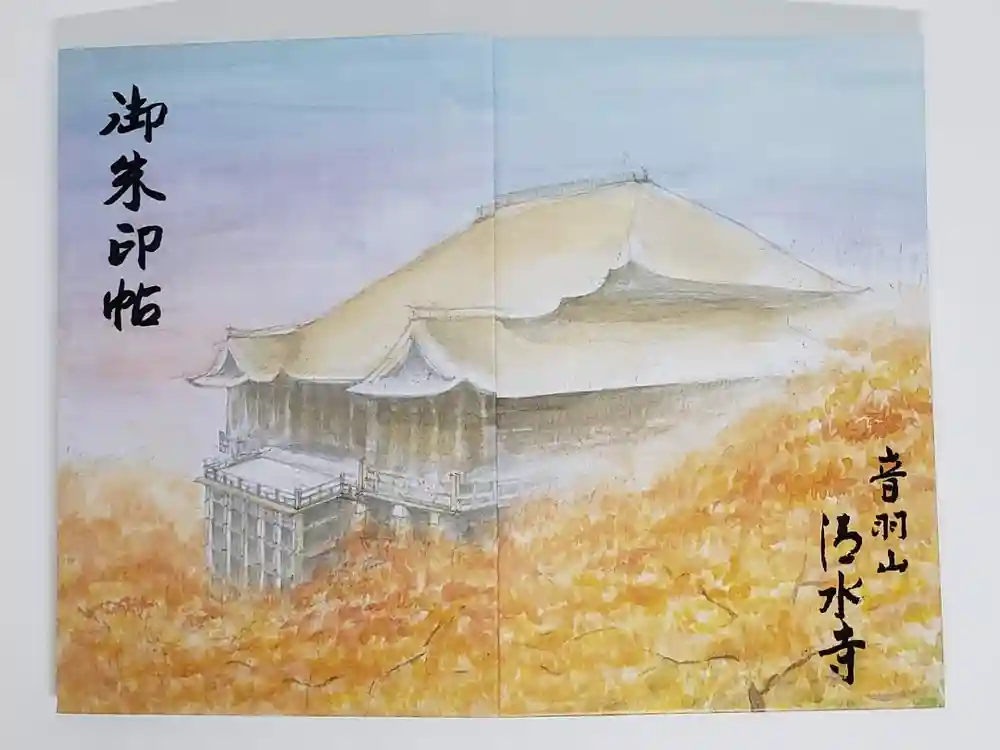 御朱印帖
音羽山
清水寺